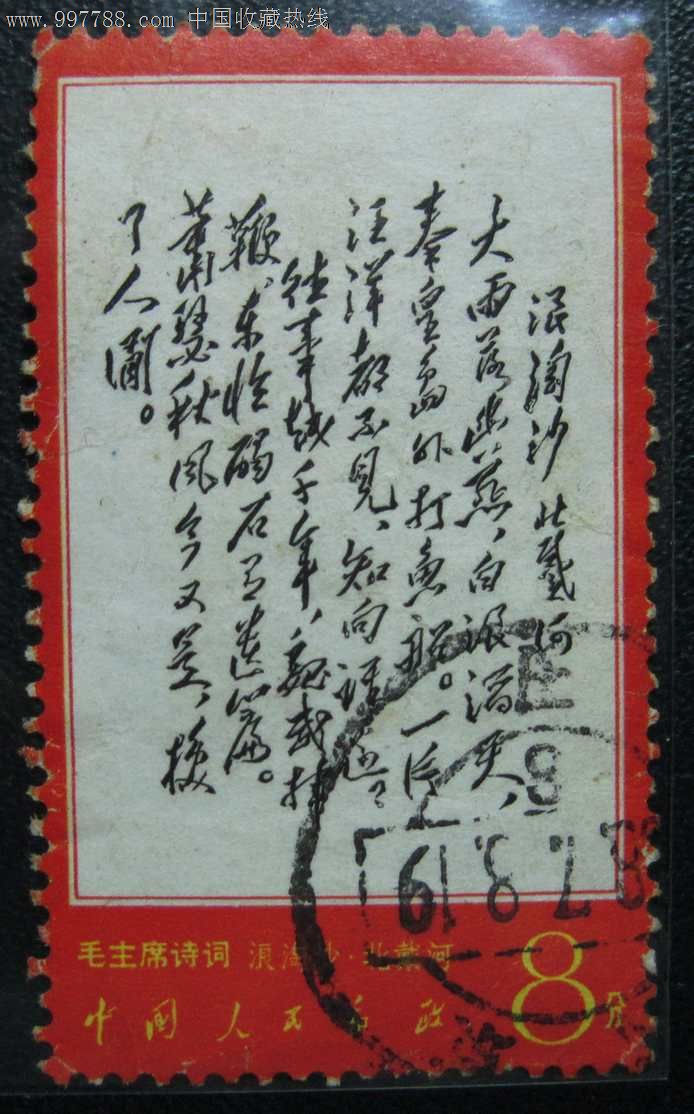 www.997788.com 中国收藏热线
浪淘沙 北戴河
大雨落幽燕、白浪滔天、
秦皇岛外打鱼船。一片
汪洋都不见、知向谁边？
往事越千年、魏武挥
鞭、东临碣石有遗篇。
萧瑟秋风今又是、换
了人间。
毛主席诗词 浪淘沙·北戴河
中国人民邮政
8分